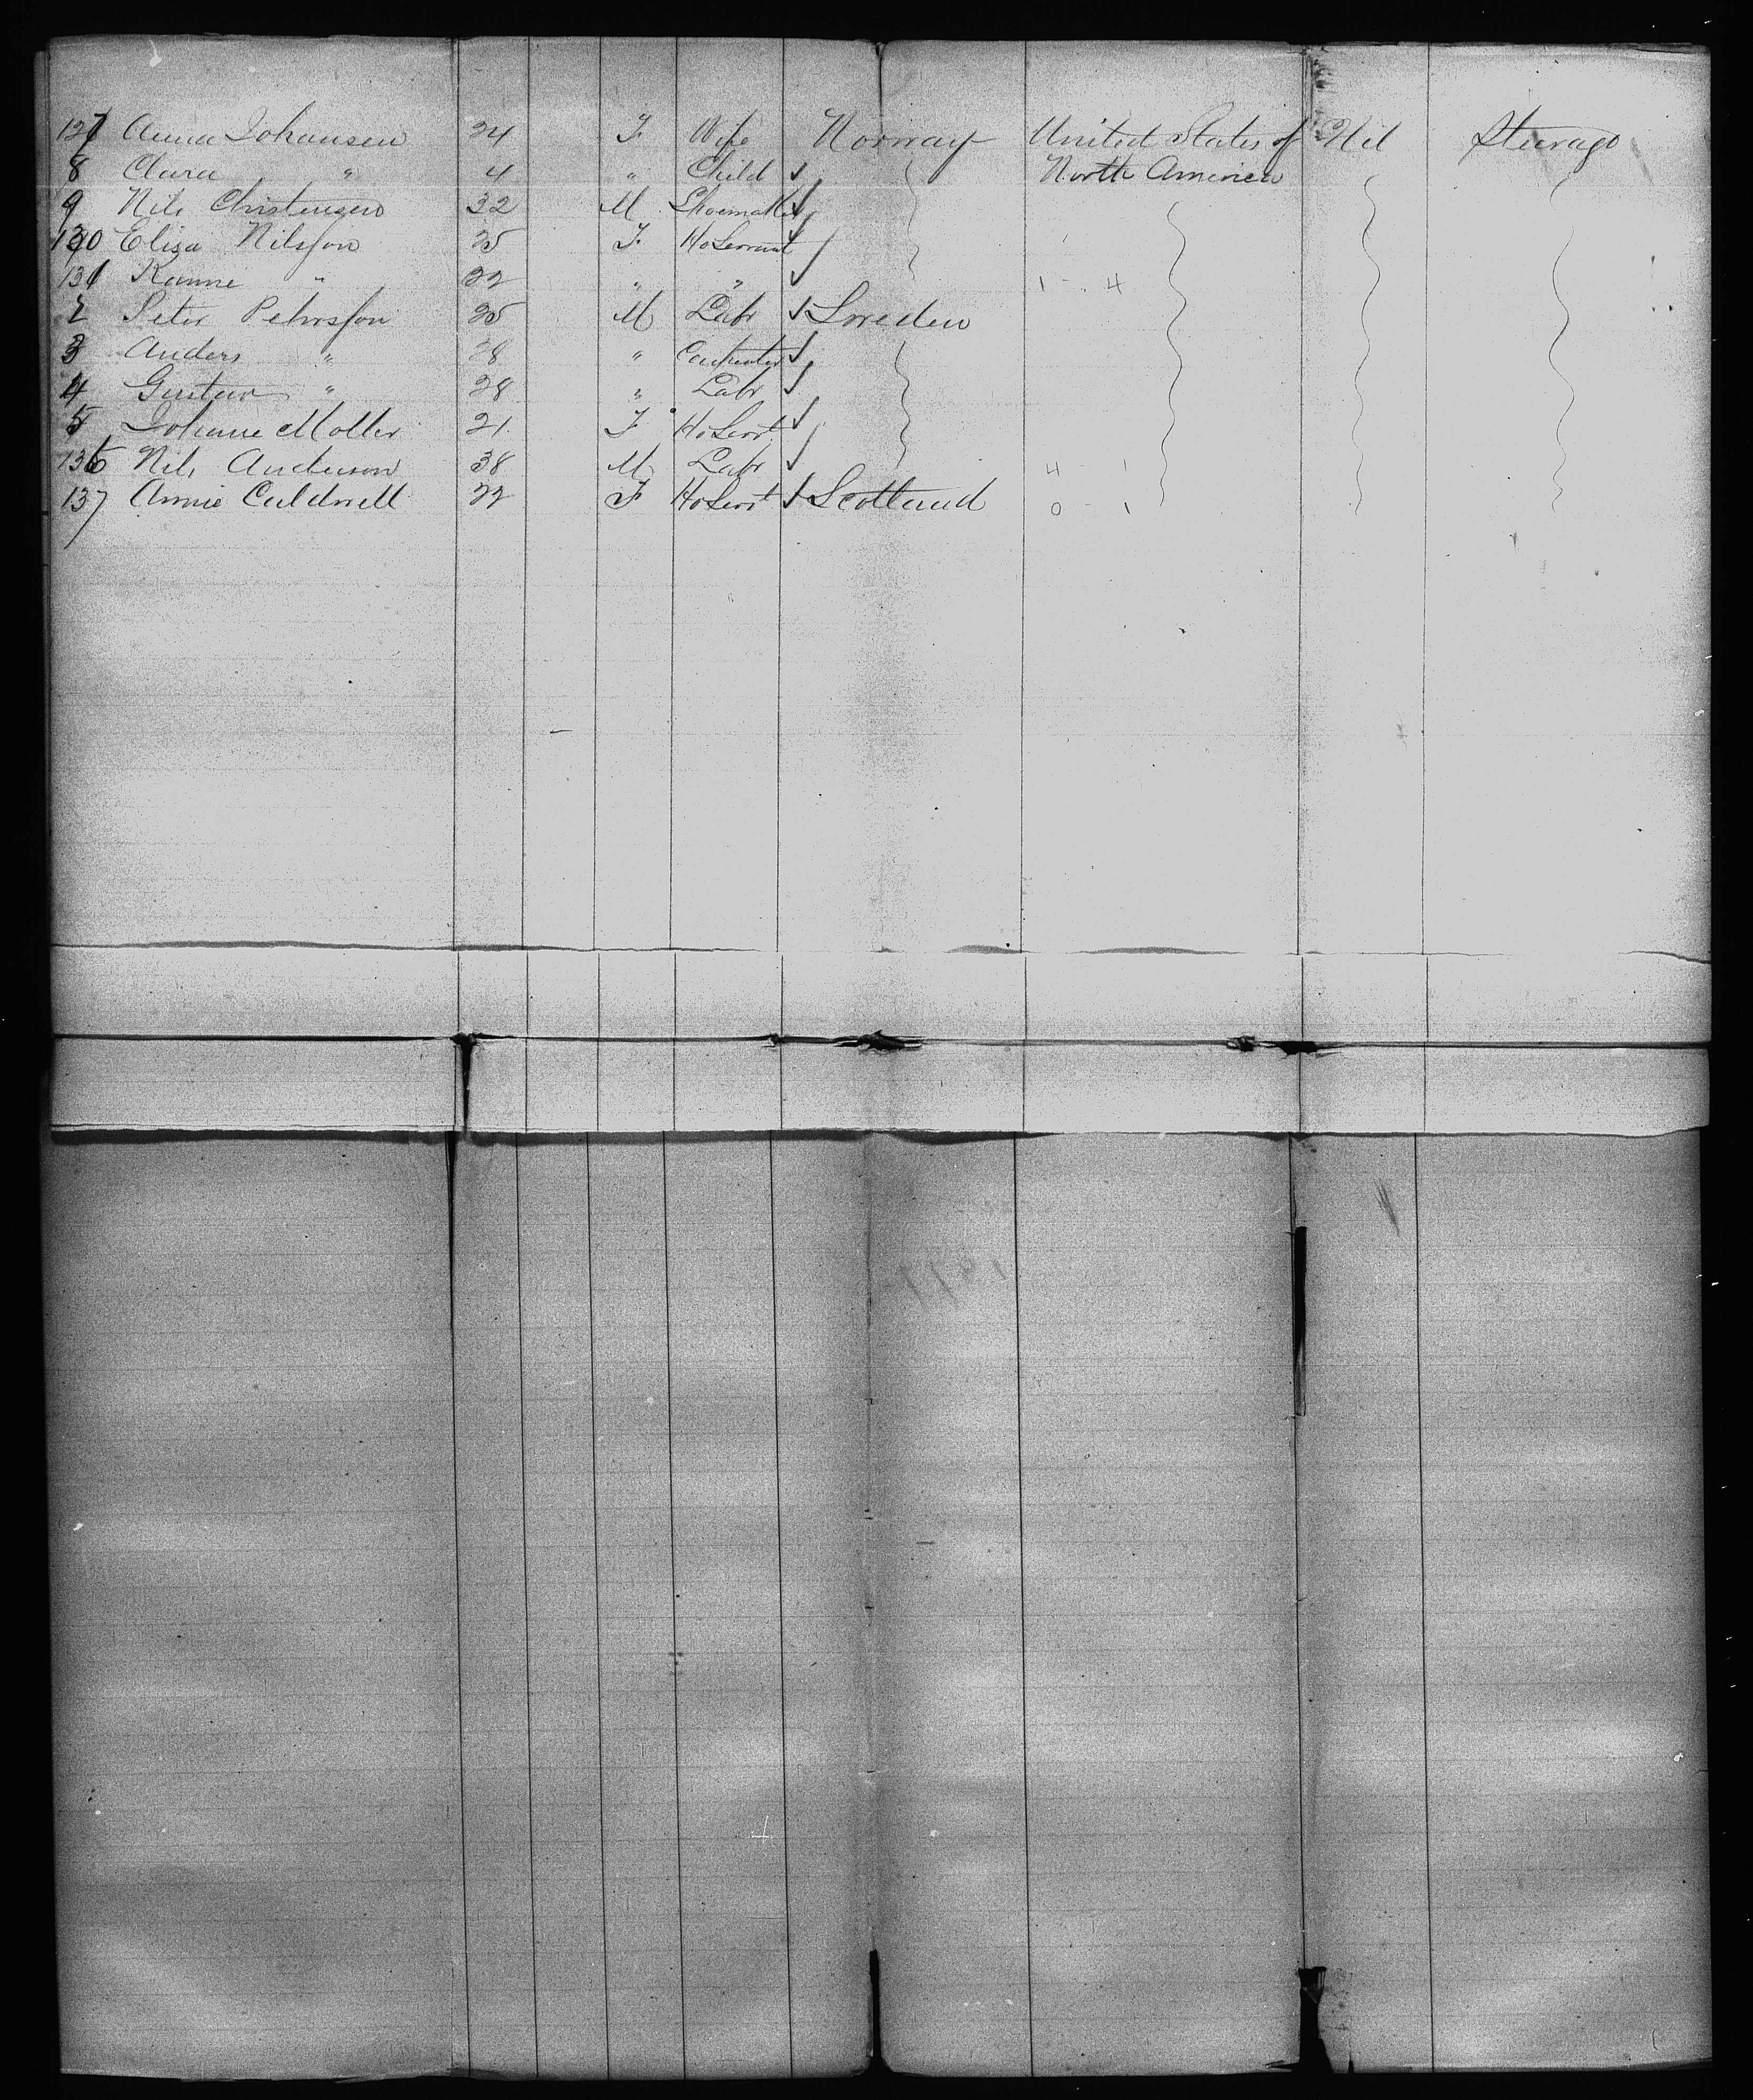 127 Anna Johansen 24 F Wife Norway United States of Nil Steerage
8 Clara " 4 " Child North America
9 Nils Christensen 32 M Shoemaker
130 Elisa Nilsson 25 F Ho Servant
131 " 22 " " 1 - 4
2 Peter Pehrsson 25 M Labr Sweden
3 Anders " 28 " Carpenter
4 Gustav " 28 " Labr
5 Johanne Moller 21 F Ho Servt
136 Nils Anderson 38 M Labr 4 - 1
137 Annie Caldwell 22 F Ho Servt Scotland 0 - 1